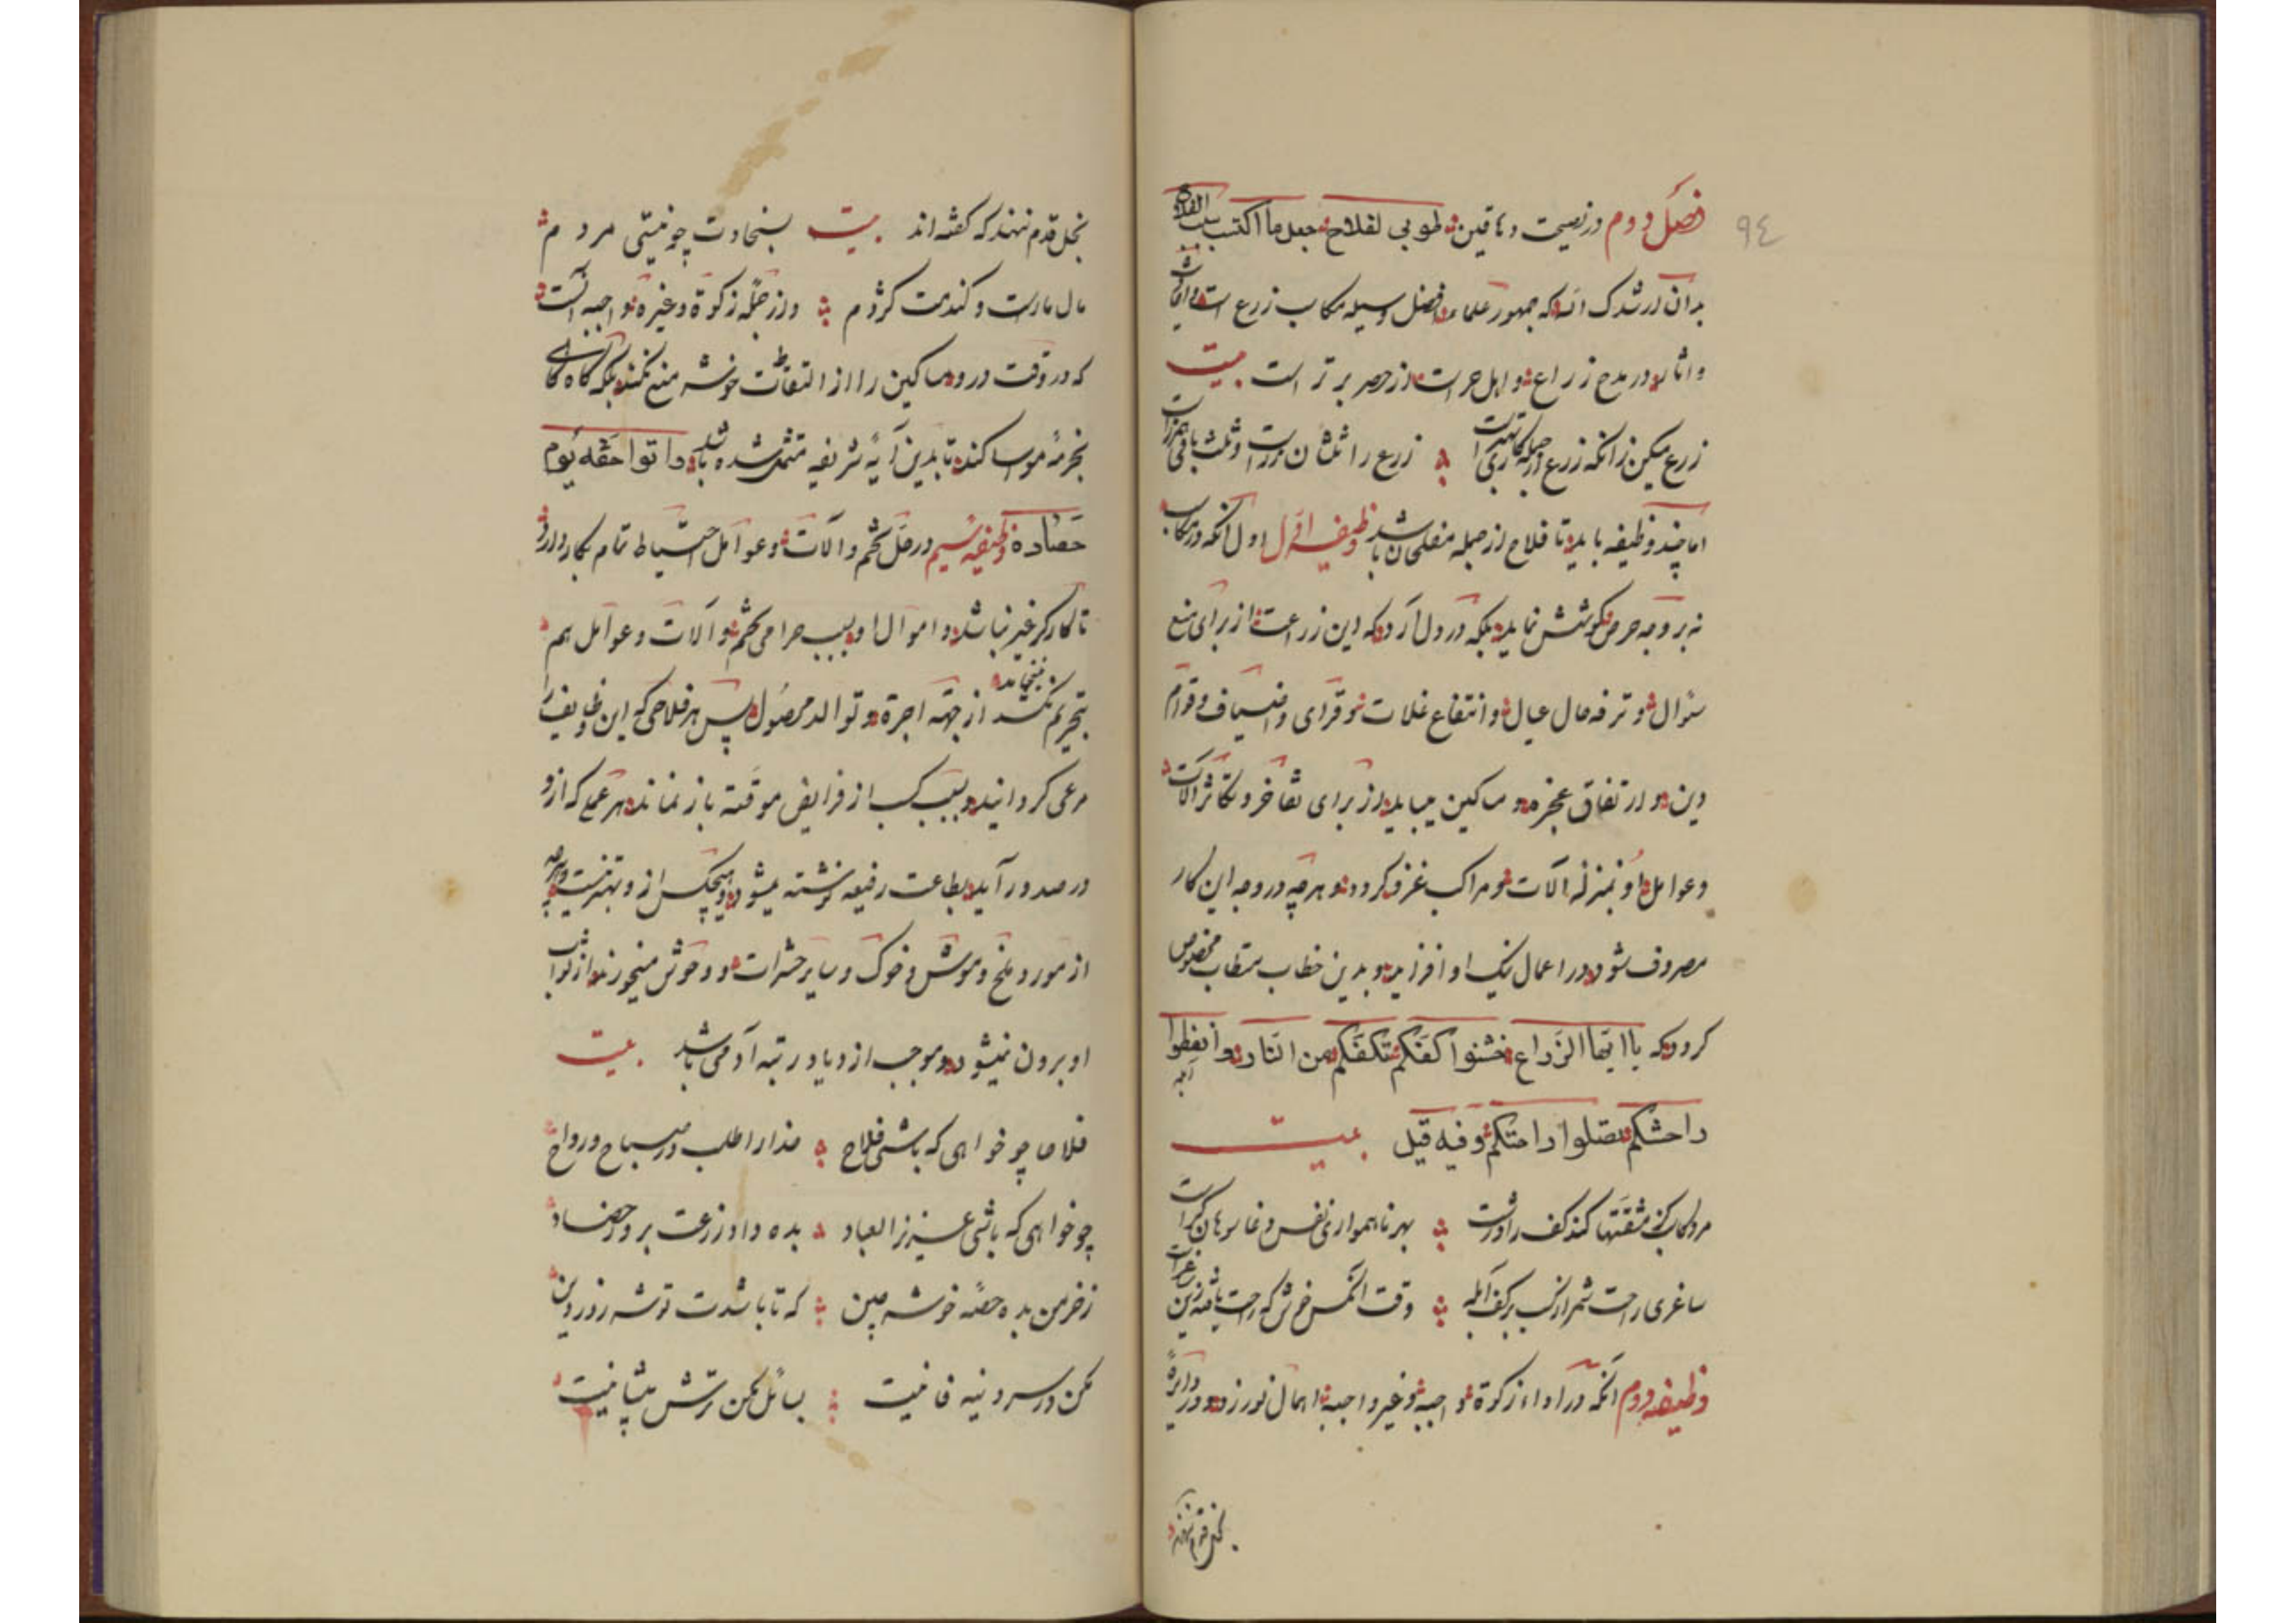 ٩٤
فصل دوم در نصیحت دهاقین طوبی لفلاح جعل ما اکتسب سبب الفلاح
بدان ارشدک الله که جمهور علماء افضل وسیله مکاسب زرع است و آیات
و اثار در مدح زراع و اهل حراست از حصر برتر است بیت
زرع میکن زانکه زرع از جمله کاری بهتر است زرع را ثلثان زر است و ثلث باقی
اما چند وظیفه باید تا فلاح از جمله مفلحان باشد وظیفه اول اول آنکه در مکاسب
نه بر وجه حرص کوشش نماید بلکه در دل آرد که این زراعت از برای منع
سئوال و ترفه حال عیال و انتفاع غلات و قرای و اضیاف و قوام
دین و ارتفاق عجزه و مساکین میباید از برای تفاخر و تکاثر آلات
و عوامل او بمنزله آلات و مراکب غزو کردد و هرچه در وجه این کار
مصروف شود در اعمال نیک او افزاید و بدین خطاب مستطاب مخصوص
کردد که یا ایها الزراع خشنوا کفکم تکفکم من النار و أنفطوا
راحشکم تصلوا راحتکم وفیه قیل بیت
مرد کاسب کز مشقتها کند کف را درشت بهر ناهمواری نفس دغا سوهان کر است
ساغری راحت شمر از کسب بر کف آبله وقت انکس خوش که راحت یافته زین
وظیفه دوم آنکه در اداء زکوة واجبه و غیر واجبه اهمال نورزد و در دایرهٔ
بخل قدم ننهد
بخل قدم ننهد که کفته‌اند بیت بسخاوت چو نیستی مردم
مال مارست و کندمت کژدم و از جمله زکوة و غیره واجبه آنست
که در وقت درو مساکین را از التقاط خوشه منع نکند بلکه کاه کاهی
بخرمن مواسا کند تا بدین آیهٔ شریفه متمثل شده باشد و اتوا حقه یوم
حصاده وظیفه سیم در حل تخم و آلات و عوامل احتیاط تمام بکار دارد
تا کارکر غیر نباشد و اموال او بسبب حرامی تخم و آلات و عوامل هم
بتحریم نکشد از جهة اجرة و توالد محصول پس هر فلاحی که این وظایف را
مرعی کرداند و بسبب کسب از فرایض موقته باز نماند هر عمل که ازو
در صدور آید بطاعت رفیعه نوشته میشود و هیچکس ازو بهتر نیست و هرچه
از مور و ملخ و موش و خوک و سایر حشرات و وحوش میخورند از ثواب
او برون نمیشود و موجب ازدیاد رتبه آدمی باشد بیت
فلاحا چو خواهی که باشی فلاح خدا را طلب در صباح و رواح
چو خواهی که باشی عزیز العباد بده داد زرعت بروز حصاد
ز خرمن بده حصهٔ خوشه چین که تا باشدت توشه روز دین
مکن در سر دنیه فانیت بسائل مکن ترش پیشانیت